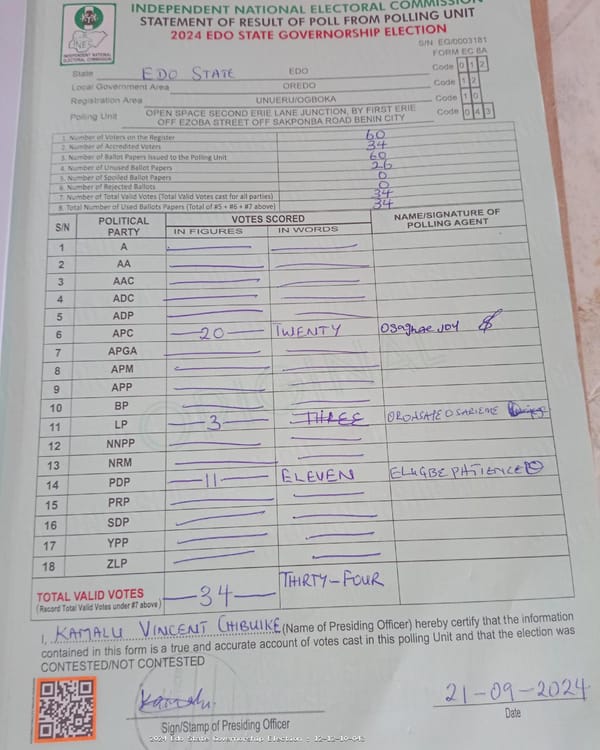 INDEPENDENT NATIONAL ELECTORAL COMMISSION
STATEMENT OF RESULT OF POLL FROM POLLING UNIT
2024 EDO STATE GOVERNORSHIP ELECTION
S/N: EG/0003181
FORM EC 8A
INEC
INDEPENDENT NATIONAL ELECTORAL COMMISSION
State EDO STATE EDO Code 0 1 2
Local Government Area OREDO Code 1 2
Registration Area UNUERU/OGBOKA Code 1 0
Polling Unit OPEN SPACE SECOND ERIE LANE JUNCTION, BY FIRST ERIE OFF EZOBA STREET OFF SAKPONBA ROAD BENIN CITY Code 0 4 3
1. Number of Voters on the Register 60
2. Number of Accredited Voters 34
3. Number of Ballot Papers Issued to the Polling Unit 60
4. Number of Unused Ballot Papers 26
5. Number of Spoiled Ballot Papers 0
6. Number of Rejected Ballots 0
7. Number of Total Valid Votes (Total Valid Votes cast for all parties) 34
8. Total Number of Used Ballots Papers (Total of #5 + #6 + #7 above) 34
S/N POLITICAL PARTY VOTES SCORED NAME/SIGNATURE OF POLLING AGENT
IN FIGURES IN WORDS
1 A
2 AA
3 AAC
4 ADC
5 ADP
6 APC 20 TWENTY Osaghae Joy
7 APGA
8 APM
9 APP
10 BP
11 LP 3 THREE
12 NNPP
13 NRM
14 PDP 11 ELEVEN ELUGBE PATIENCE
15 PRP
16 SDP
17 YPP
18 ZLP
TOTAL VALID VOTES 34 THIRTY-FOUR
(Record Total Valid Votes under #7 above)
I, KAMALU VINCENT CHIBUIKE (Name of Presiding Officer) hereby certify that the information
contained in this form is a true and accurate account of votes cast in this polling Unit and that the election was
CONTESTED/NOT CONTESTED
Kamalu 21-09-2024
Sign/Stamp of Presiding Officer Date
2024 Edo State Governorship Election : 12-12-10-043